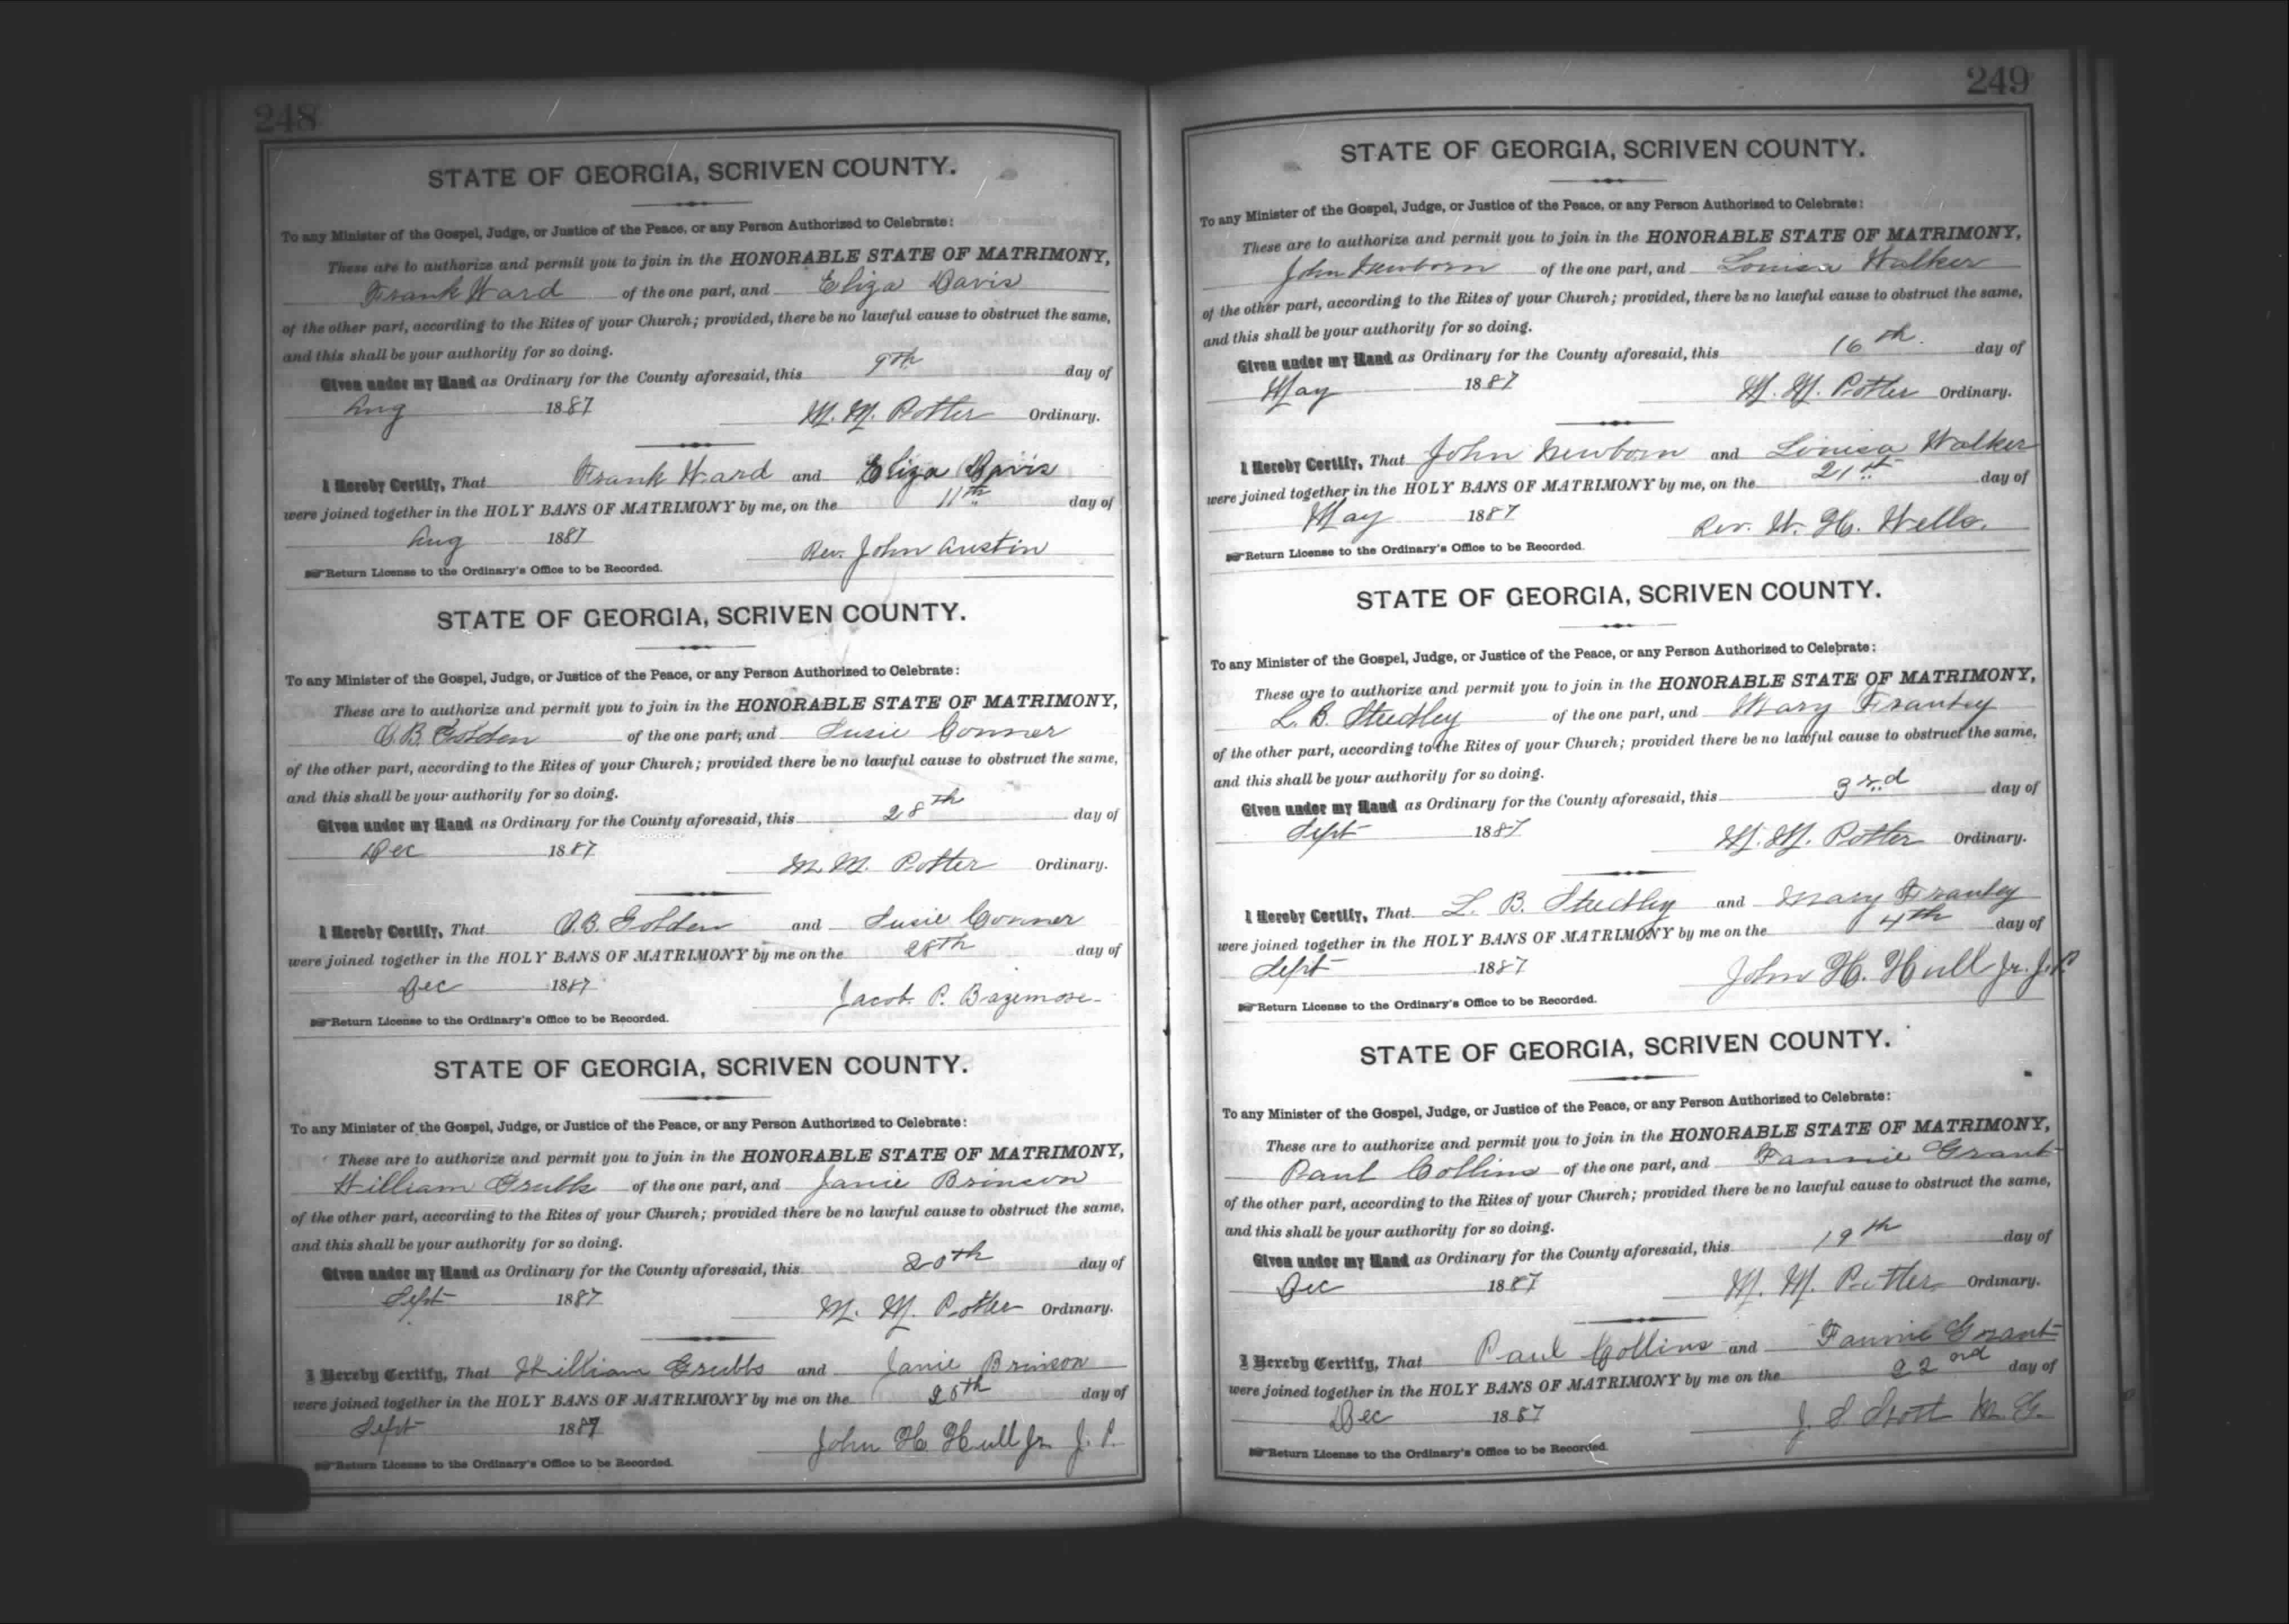 248
STATE OF GEORGIA, SCRIVEN COUNTY.
To any Minister of the Gospel, Judge, or Justice of the Peace, or any Person Authorized to Celebrate:
These are to authorize and permit you to join in the HONORABLE STATE OF MATRIMONY,
Frank Ward of the one part, and Eliza Davis
of the other part, according to the Rites of your Church; provided, there be no lawful cause to obstruct the same,
and this shall be your authority for so doing.
Given under my Hand as Ordinary for the County aforesaid, this 9th day of
Aug 1887 M. M. Potter Ordinary.
I Hereby Certify, That Frank Ward and Eliza Davis
were joined together in the HOLY BANS OF MATRIMONY by me, on the 11th day of
Aug 1887 Rev. John Austin
Return License to the Ordinary's Office to be Recorded.
STATE OF GEORGIA, SCRIVEN COUNTY.
To any Minister of the Gospel, Judge, or Justice of the Peace, or any Person Authorized to Celebrate:
These are to authorize and permit you to join in the HONORABLE STATE OF MATRIMONY,
B. Golden of the one part, and Susie Conner
of the other part, according to the Rites of your Church; provided there be no lawful cause to obstruct the same,
and this shall be your authority for so doing.
Given under my Hand as Ordinary for the County aforesaid, this 28th day of
Dec 1887 M. M. Potter Ordinary.
I Hereby Certify, That B. Golden and Susie Conner
were joined together in the HOLY BANS OF MATRIMONY by me on the 28th day of
Dec 1887 Jacob P. Bazemore
Return License to the Ordinary's Office to be Recorded.
STATE OF GEORGIA, SCRIVEN COUNTY.
To any Minister of the Gospel, Judge, or Justice of the Peace, or any Person Authorized to Celebrate:
These are to authorize and permit you to join in the HONORABLE STATE OF MATRIMONY,
William Grubbs of the one part, and Janie Brinson
of the other part, according to the Rites of your Church; provided there be no lawful cause to obstruct the same,
and this shall be your authority for so doing.
Given under my Hand as Ordinary for the County aforesaid, this 20th day of
Sept 1887 M. M. Potter Ordinary.
I Hereby Certify, That William Grubbs and Janie Brinson
were joined together in the HOLY BANS OF MATRIMONY by me on the 20th day of
Sept 1887 John H. Hull Jr. J. P.
Return License to the Ordinary's Office to be Recorded.
249
STATE OF GEORGIA, SCRIVEN COUNTY.
To any Minister of the Gospel, Judge, or Justice of the Peace, or any Person Authorized to Celebrate:
These are to authorize and permit you to join in the HONORABLE STATE OF MATRIMONY,
John Newborn of the one part, and Louisa Walker
of the other part, according to the Rites of your Church; provided, there be no lawful cause to obstruct the same,
and this shall be your authority for so doing.
Given under my Hand as Ordinary for the County aforesaid, this 16th. day of
May 1887 M. M. Potter Ordinary.
I Hereby Certify, That John Newborn and Louisa Walker
were joined together in the HOLY BANS OF MATRIMONY by me, on the 21st day of
May 1887 Rev. W. H. Wells.
Return License to the Ordinary's Office to be Recorded.
STATE OF GEORGIA, SCRIVEN COUNTY.
To any Minister of the Gospel, Judge, or Justice of the Peace, or any Person Authorized to Celebrate:
These are to authorize and permit you to join in the HONORABLE STATE OF MATRIMONY,
L. B. of the one part, and Mary
of the other part, according to the Rites of your Church; provided there be no lawful cause to obstruct the same,
and this shall be your authority for so doing.
Given under my Hand as Ordinary for the County aforesaid, this 3rd day of
Sept 1887 M. M. Potter Ordinary.
I Hereby Certify, That L. B. and Mary
were joined together in the HOLY BANS OF MATRIMONY by me on the 4th day of
Sept 1887 John H. Hull Jr. J. P.
Return License to the Ordinary's Office to be Recorded.
STATE OF GEORGIA, SCRIVEN COUNTY.
To any Minister of the Gospel, Judge, or Justice of the Peace, or any Person Authorized to Celebrate:
These are to authorize and permit you to join in the HONORABLE STATE OF MATRIMONY,
Paul Collins of the one part, and Fannie Grant
of the other part, according to the Rites of your Church; provided there be no lawful cause to obstruct the same,
and this shall be your authority for so doing.
Given under my Hand as Ordinary for the County aforesaid, this 19th day of
Dec 1887 M. M. Potter Ordinary.
I Hereby Certify, That Paul Collins and Fannie Grant
were joined together in the HOLY BANS OF MATRIMONY by me on the 22nd day of
Dec 1887 J. S. Scott M. G.
Return License to the Ordinary's Office to be Recorded.